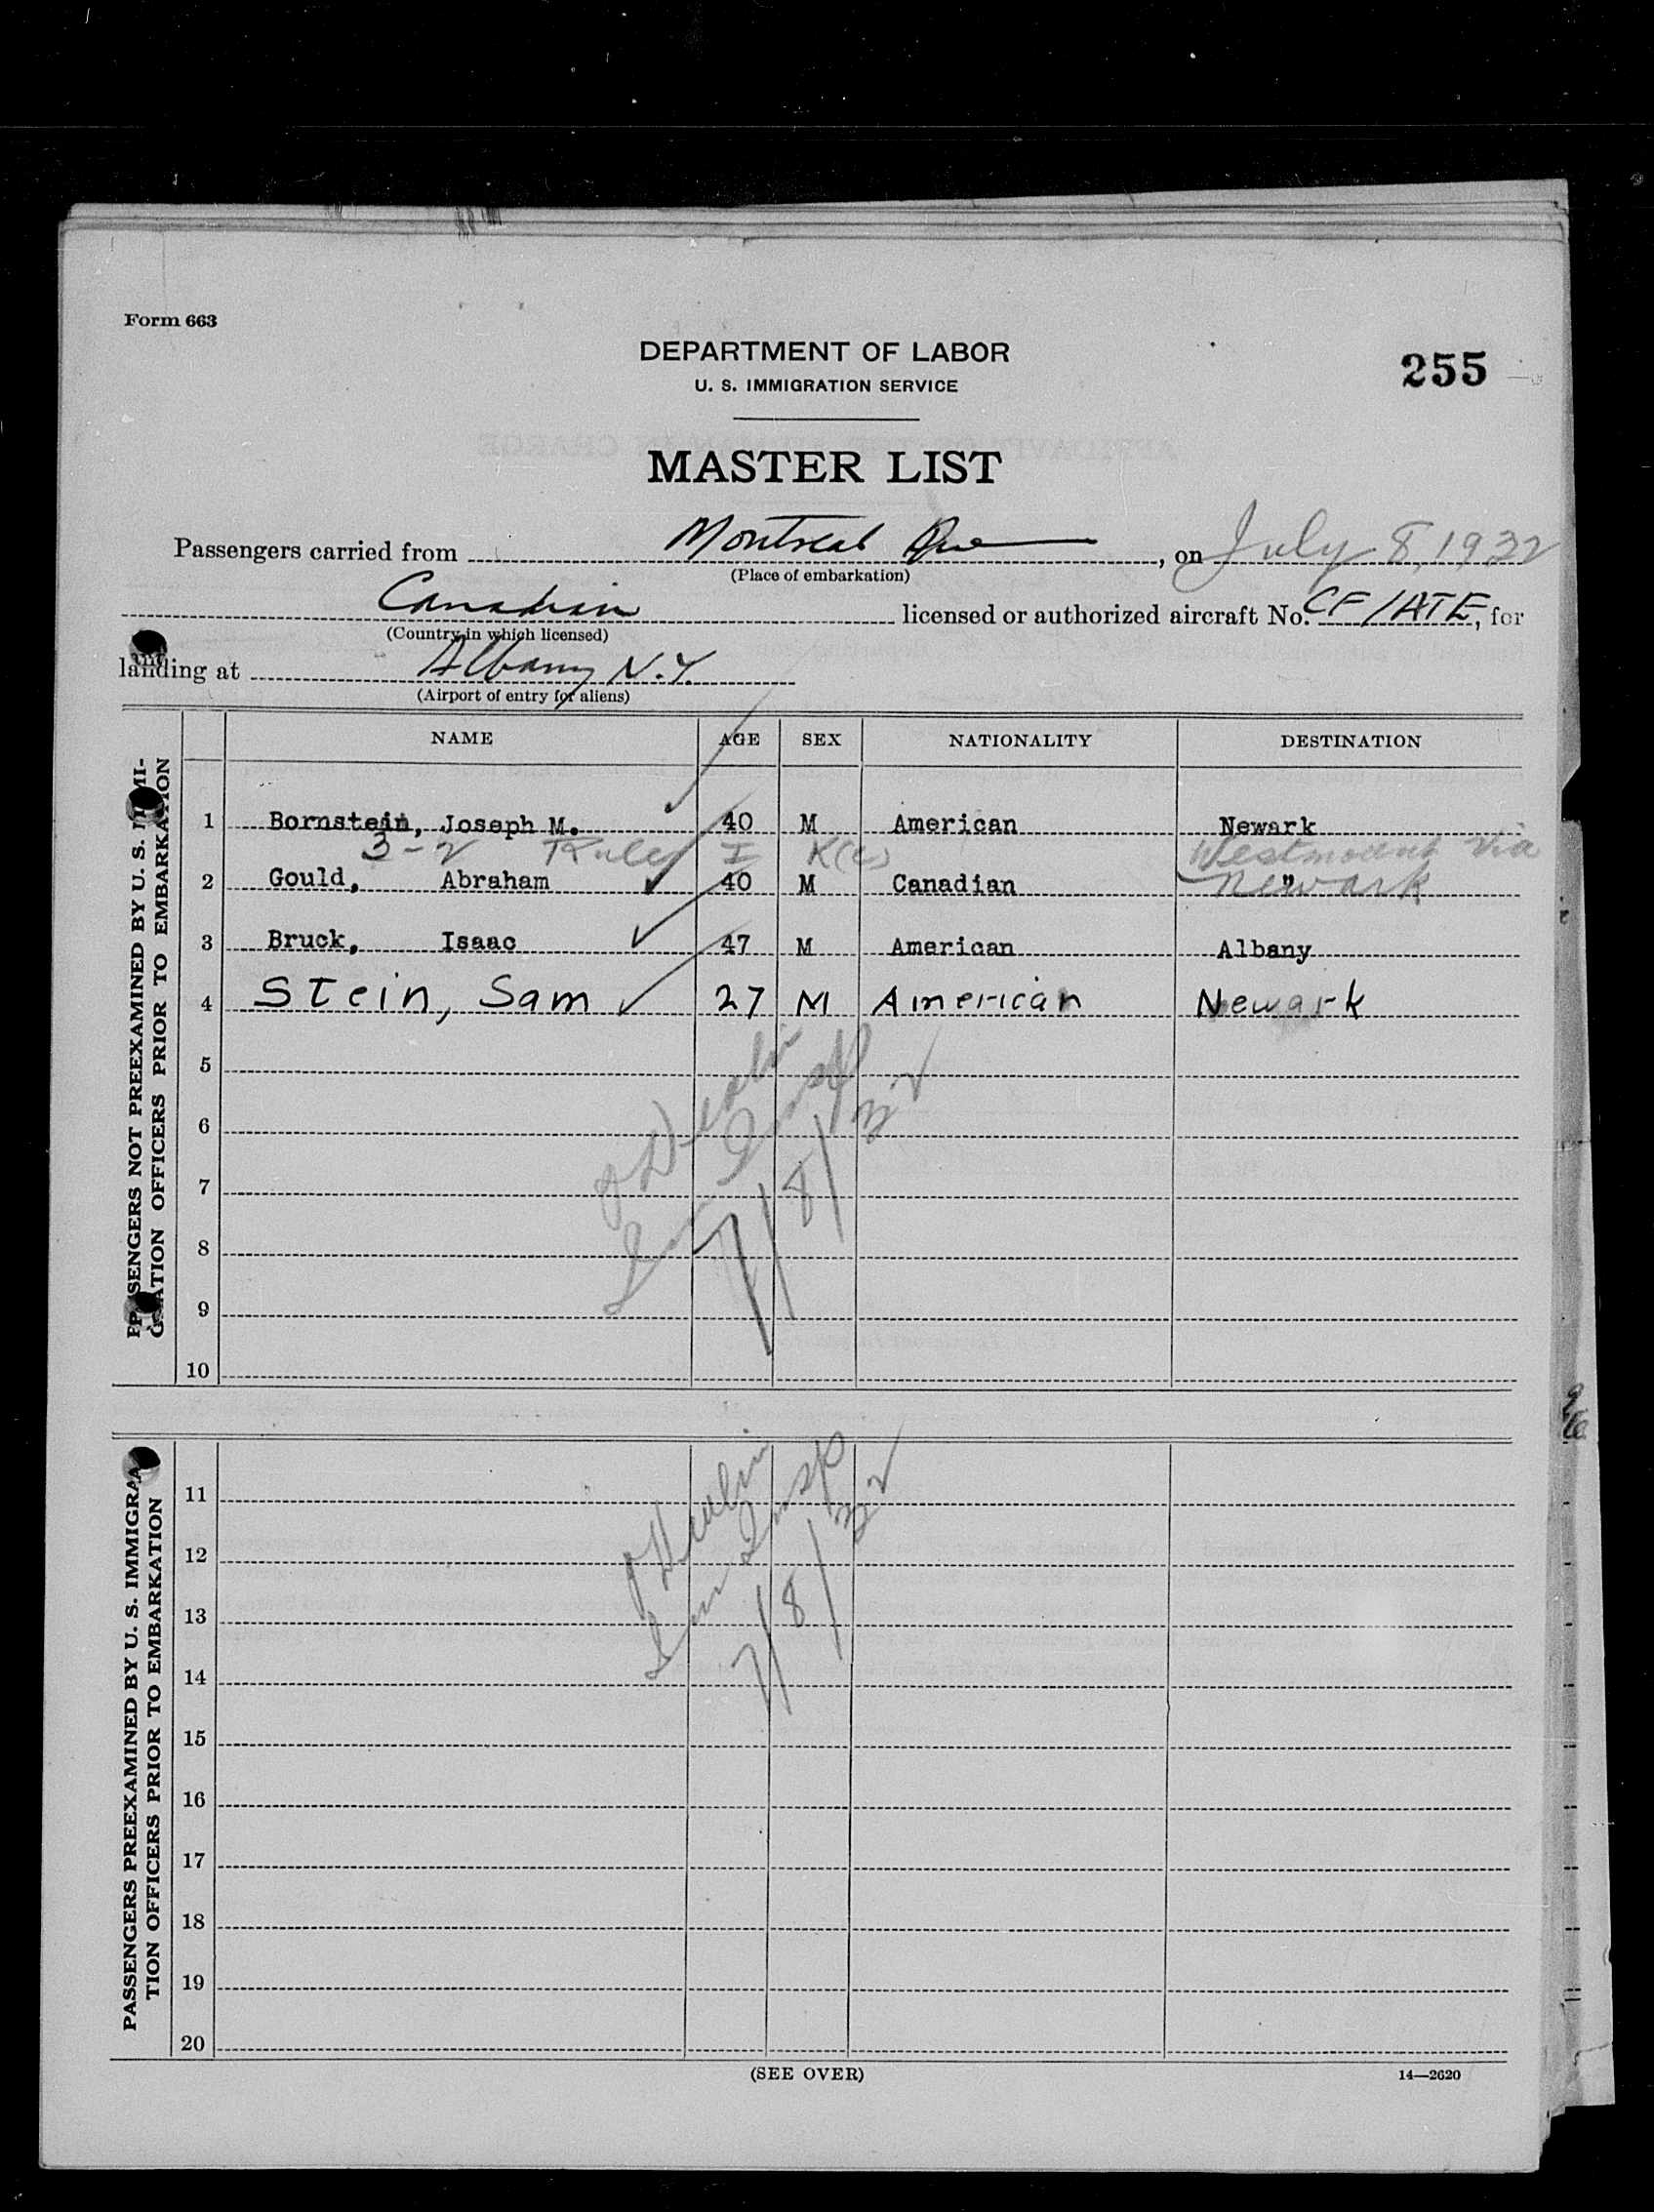 Form 663
DEPARTMENT OF LABOR
U. S. IMMIGRATION SERVICE
255
MASTER LIST
Passengers carried from Montreal Que, on July 8, 1932
(Place of embarkation)
Canadian licensed or authorized aircraft No. CF/ATE, for
(Country in which licensed)
landing at Albany N.Y.
(Airport of entry for aliens)
NAME AGE SEX NATIONALITY DESTINATION
PASSENGERS NOT PREEXAMINED BY U. S. IMMI-
GRATION OFFICERS PRIOR TO EMBARKATION
1 Bornstein, Joseph M. 40 M American Newark
3-2 Rule I K(c) Westmount via
2 Gould, Abraham 40 M Canadian " Newark
3 Bruck, Isaac 47 M American Albany
4 Stein, Sam 27 M American Newark
5
6
7
8
9
10
J Devlin
Imm Insp
7/8/32
PASSENGERS PREEXAMINED BY U. S. IMMIGRA
TION OFFICERS PRIOR TO EMBARKATION
11
12
13
14
15
16
17
18
19
20
J Devlin
Imm Insp
7/8/32
(SEE OVER)
14—2620